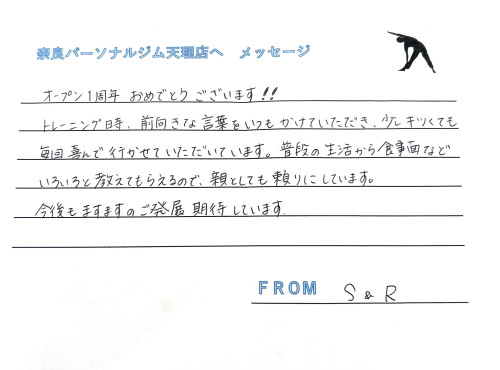 奈良パーソナルジム天理店へ メッセージ
オープン1周年 おめでとう ございます!!
トレーニング時、前向きな言葉をいつもかけていただき、少しキツくても
毎回喜んで行かせていただいています。普段の生活から食事面など
いろいろと教えてもらえるので、親としても頼りにしています。
今後もますますのご発展 期待しています.
FROM S & R